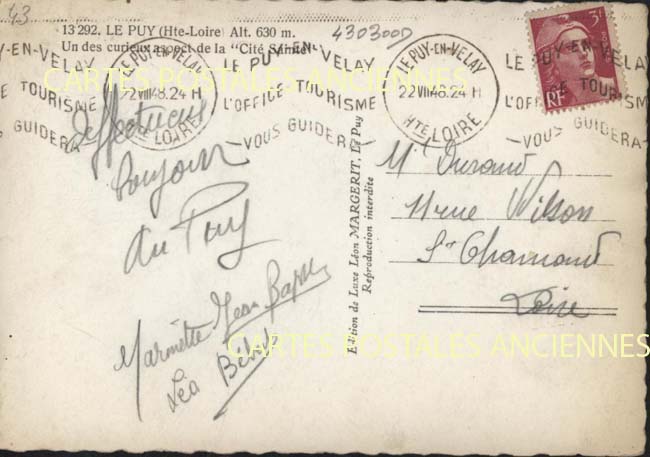 43
13 292. LE PUY (Hte-Loire) Alt. 630 m.
Un des curieux aspect de la "Cité Sainte"
4303000
LE PUY-EN-VELAY
L'OFFICE DE TOURISME
VOUS GUIDERA
LE PUY-EN-VELAY
22 VII 48. 24 H
HTE LOIRE
LE PUY-EN-VELAY
L'OFFICE DE TOURISME
- VOUS GUIDERA -
LE PUY-EN-VELAY
22 VII 48. 24 H
HTE LOIRE
LE PUY-EN-VELAY
L'OFFICE DE TOURISME
- VOUS GUIDERA -
3F
RF
CARTES POSTALES ANCIENNES
Affectueux
bonjour
du Puy
Mariette Jean Bapt
Léa Bébé
Edition de Luxe Léon MARGERIT, Le Puy
Reproduction interdite
Mr Durand
11 rue Wilson
St Chamond
Loire
CARTES POSTALES ANCIENNES